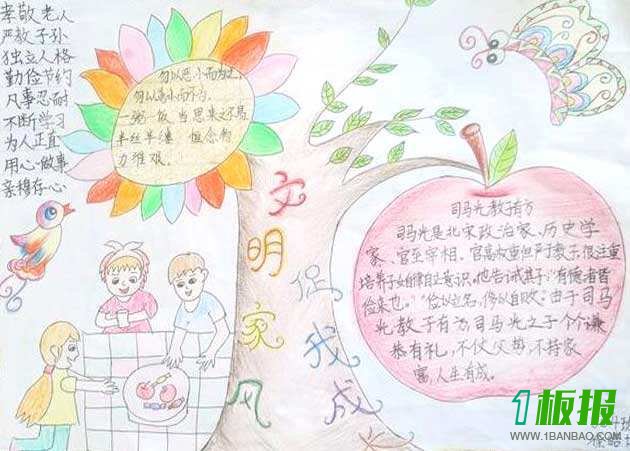 孝敬老人
严教子孙
独立人格
勤俭节约
凡事忍耐
不断学习
为人正直
用心做事
亲穆存心
勿以恶小而为之,
勿以善小而不为。
一粥一饭,当思来之不易
半丝半缕,恒念物
力维艰。
文明家风
促我成
司马光教子有方
司马光是北宋政治家、历史学
家,官至宰相。官高权重但严于教子,很注重
培养子女自律意识。他告诫其子:“有德者皆
俭来也。”“俭以立名,侈以自败。”由于司马
光教子有方,司马光之子个个谦
恭有礼,不仗父势,不恃家
富,人生有成。
1板报
WWW.1BANBAO.COM